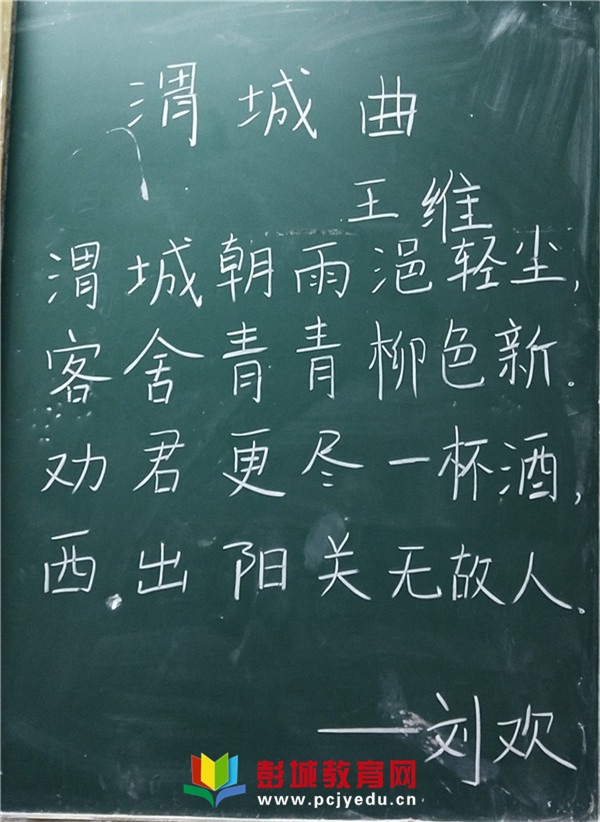 渭城曲
王维
渭城朝雨浥轻尘,
客舍青青柳色新.
劝君更尽一杯酒,
西出阳关无故人.
——刘欢
彭城教育网
www.pcjyedu.cn